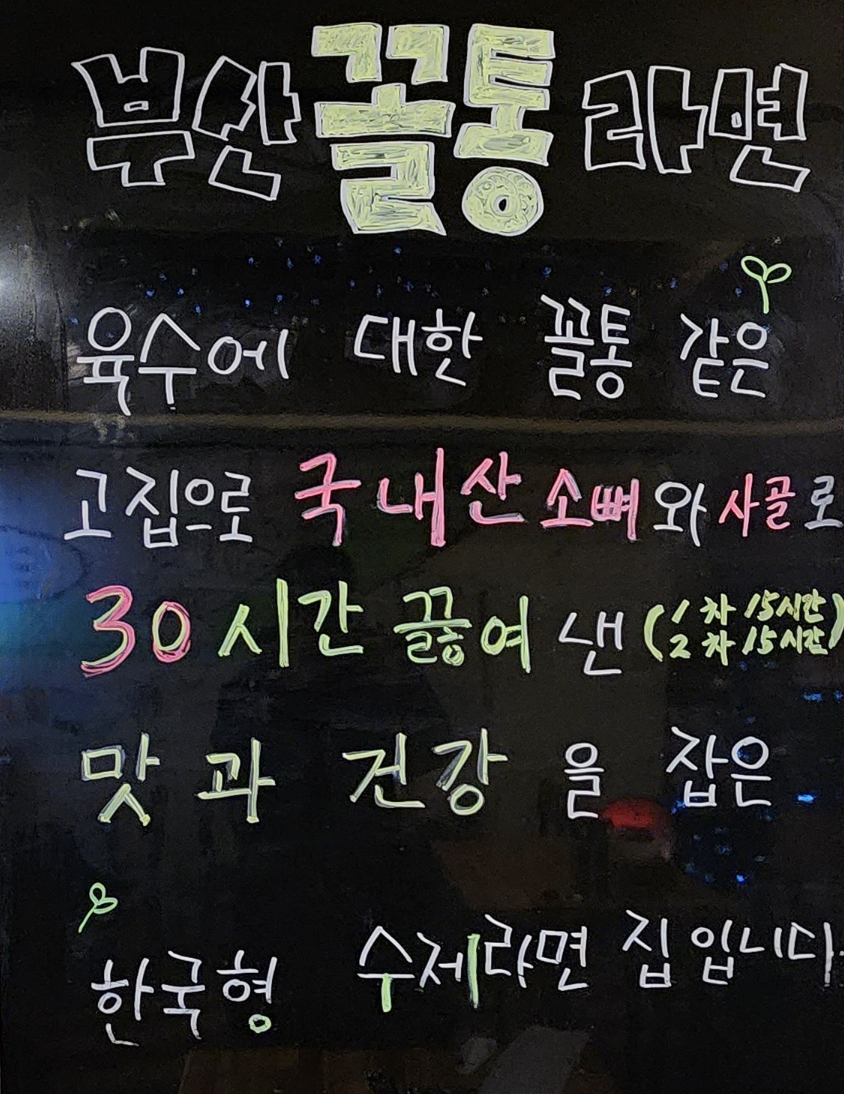 부산 꼴통 라면
육수에 대한 꼴통 같은
고집으로 국내산 소뼈와 사골로
30시간 끓여 낸 (1차 15시간
2차 15시간)
맛과 건강을 잡은
한국형 수제라면 집입니다.